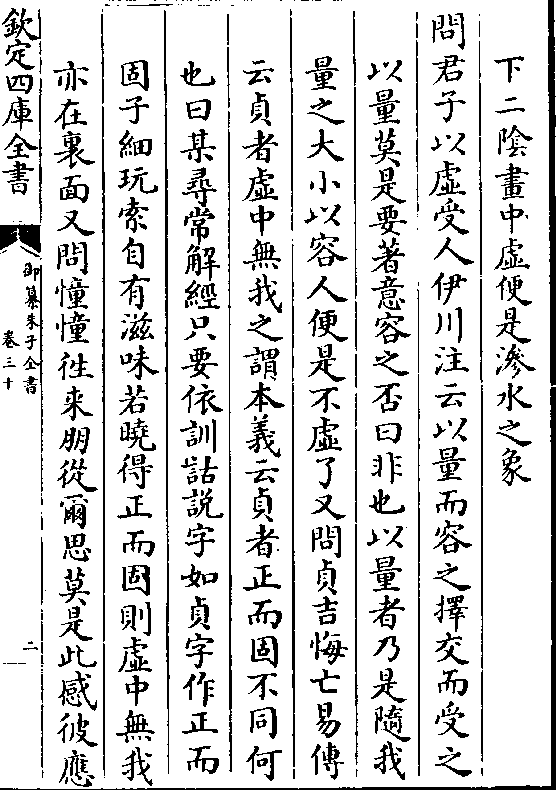 下二陰畫中虛便是滲水之象
問君子以虛受人伊川注云以量而容之擇交而受之
以量莫是要著意容之否曰非也以量者乃是隨我
量之大小以容人便是不虛了又問貞吉悔亡易傳
云貞者虛中無我之謂本義云貞者正而固不同何
也曰某尋常解經只要依訓詁說字如貞字作正而
固子細玩索自有滋味若曉得正而固則虛中無我
亦在裏面又問憧憧徃来朋從爾思莫是此感彼應
欽定四庫全書
御纂朱子全書
卷三十
二